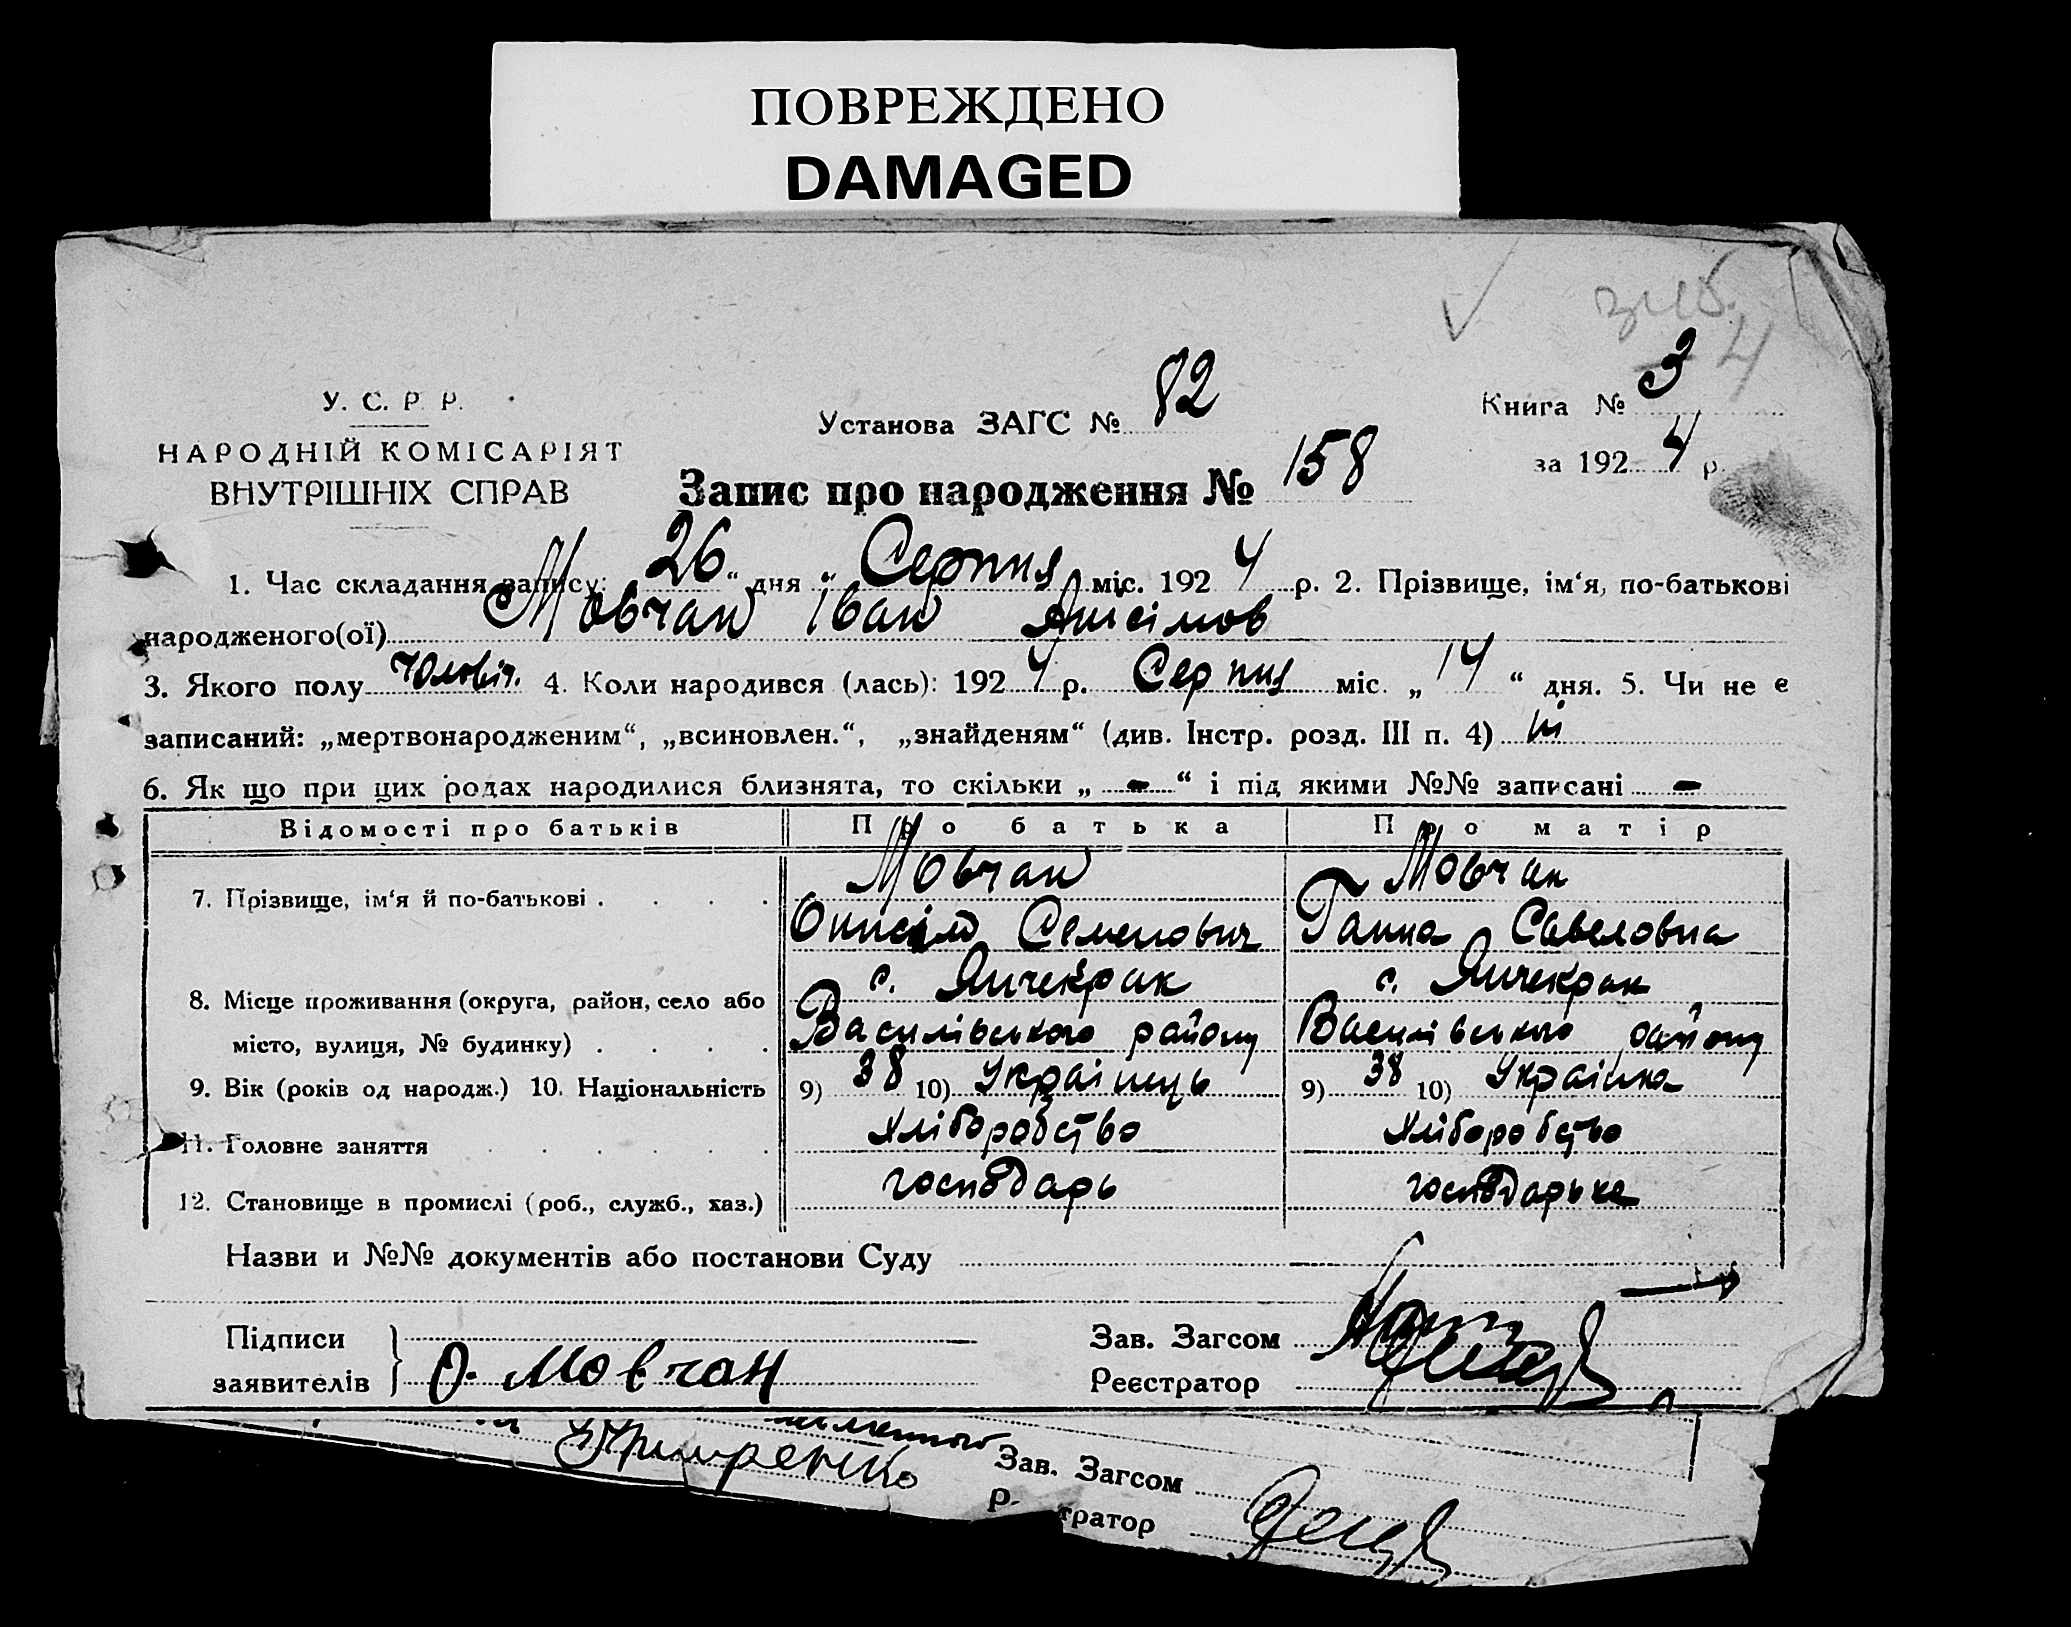 ПОВРЕЖДЕНО
DAMAGED
У. С. Р. Р.
НАРОДНІЙ КОМІСАРІЯТ
ВНУТРІШНІХ СПРАВ
Установа ЗАГС № 82
Книга № 3
4
за 1924 р.
Запис про народження № 158
1. Час складання запису: 26 “ дня „ Серпня міс. 1924 р. 2. Прізвище, ім‘я, по-батькові
народженого(ої) Мовчан Іван Анисімов
3. Якого полу чоловіч. 4. Коли народився (лась): 1924 р. Серпня міс. „ 14 “ дня. 5. Чи не є
записаний: „мертвонародженим“, „всиновлен.“, „знайденям“ (див. Інстр. розд. III п. 4) ні
6. Як що при цих родах народилися близнята, то скільки „ - “ і під якими №№ записані -
Відомості про батьків Про батька Про матір
7. Прізвище, ім‘я й по-батькові . . . . Мовчан Онисім Семенович Мовчан Ганна Савеловна
8. Місце проживання (округа, район, село або с. Янчекрак с. Янчекрак
місто, вулиця, № будинку) . . . . Василівського району Василівського району
9. Вік (років од народж.) 10. Національність 9) 38 10) Українець 9) 38 10) Українка
11. Головне заняття . . . . . . Хліборобство Хліборобство
12. Становище в промислі (роб., служб., хаз.) господарь господарька
Назви и №№ документів або постанови Суду
Підписи
заявителів } О. Мовчан
Зав. Загсом
Реєстратор
Зав. Загсом
тратор